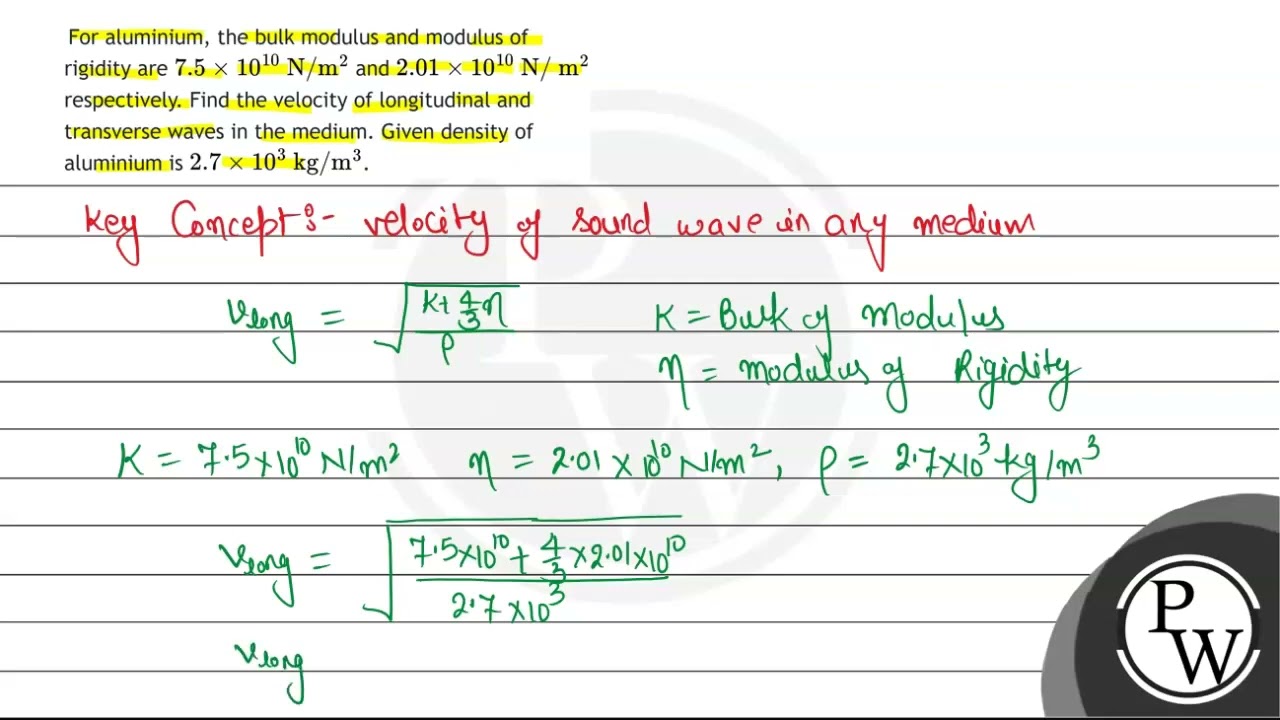 For aluminium, the bulk modulus and modulus of
rigidity are 7.5 × 10¹⁰ N/m² and 2.01 × 10¹⁰ N/ m²
respectively. Find the velocity of longitudinal and
transverse waves in the medium. Given density of
aluminium is 2.7 × 10³ kg/m³.
Key Concept:- velocity of sound wave in any medium
v_long = √((K + 4/3 η)/ρ) K = Bulk of Modulus
η = modulus of Rigidity
K = 7.5×10¹⁰ N/m² η = 2.01 × 10¹⁰ N/m², ρ = 2.7×10³ kg/m³
v_long = √((7.5×10¹⁰ + 4/3 × 2.01×10¹⁰)/(2.7×10³))
v_long
PW